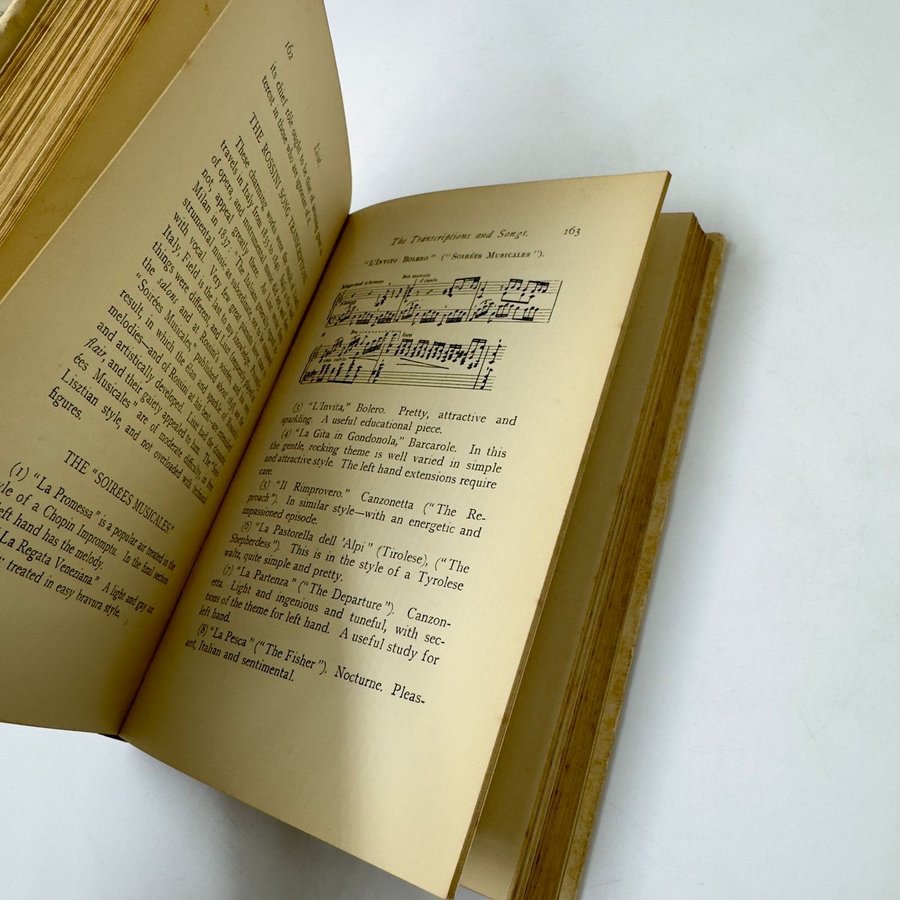 162
Liszt
its chief rôle ought to be that of
terest in those who are ignorant of
THE ROSSINI SONG
These charming works were the
travels in Italy from 1835 to 1840. As
of opera, and instrumental music
not, appeal greatly there.
Milan in 1837: "The
strumental music as subordinate
with vocal. Very few great
Italy, Field is the last, I
the salons and at Rossini's
things were different and Liszt found
"Soirées Musicales," published about
result, in which the élan and sparkle of Rossini's
melodies—and of Rossini at his best—are
and artistically developed. Liszt had the
flair, and their gaiety appealed to him. The
ées Musicales" are of moderate difficulty, in
Lisztian style, and not overloaded with
figures.
THE "SOIRÉES MUSICALES"
(1) "La Promessa" is a popular air treated in the
le of a Chopin Impromptu. In the final section
eft hand has the melody.
La Regata Veneziana." A light and gay air
treated in easy bravura style.
The Transcriptions and Songs. 163
"L'Invito Bolero" ("Soirées Musicales").
(3) "L'Invita," Bolero. Pretty, attractive and
sparkling. A useful educational piece.
(4) "La Gita in Gondonola," Barcarole. In this
the gentle, rocking theme is well varied in simple
and attractive style. The left hand extensions require
care.
(5) "Il Rimprovero." Canzonetta ("The Re-
proach"). In similar style—with an energetic and
impassioned episode.
(6) "La Pastorella dell 'Alpi" (Tirolese), ("The
Shepherdess"). This is in the style of a Tyrolese
waltz, quite simple and pretty.
(7) "La Partenza" ("The Departure"). Canzon-
etta. Light and ingenious and tuneful, with sec-
tions of the theme for left hand. A useful study for
left hand.
(8) "La Pesca" ("The Fisher"). Nocturne. Pleas-
ant, Italian and sentimental.